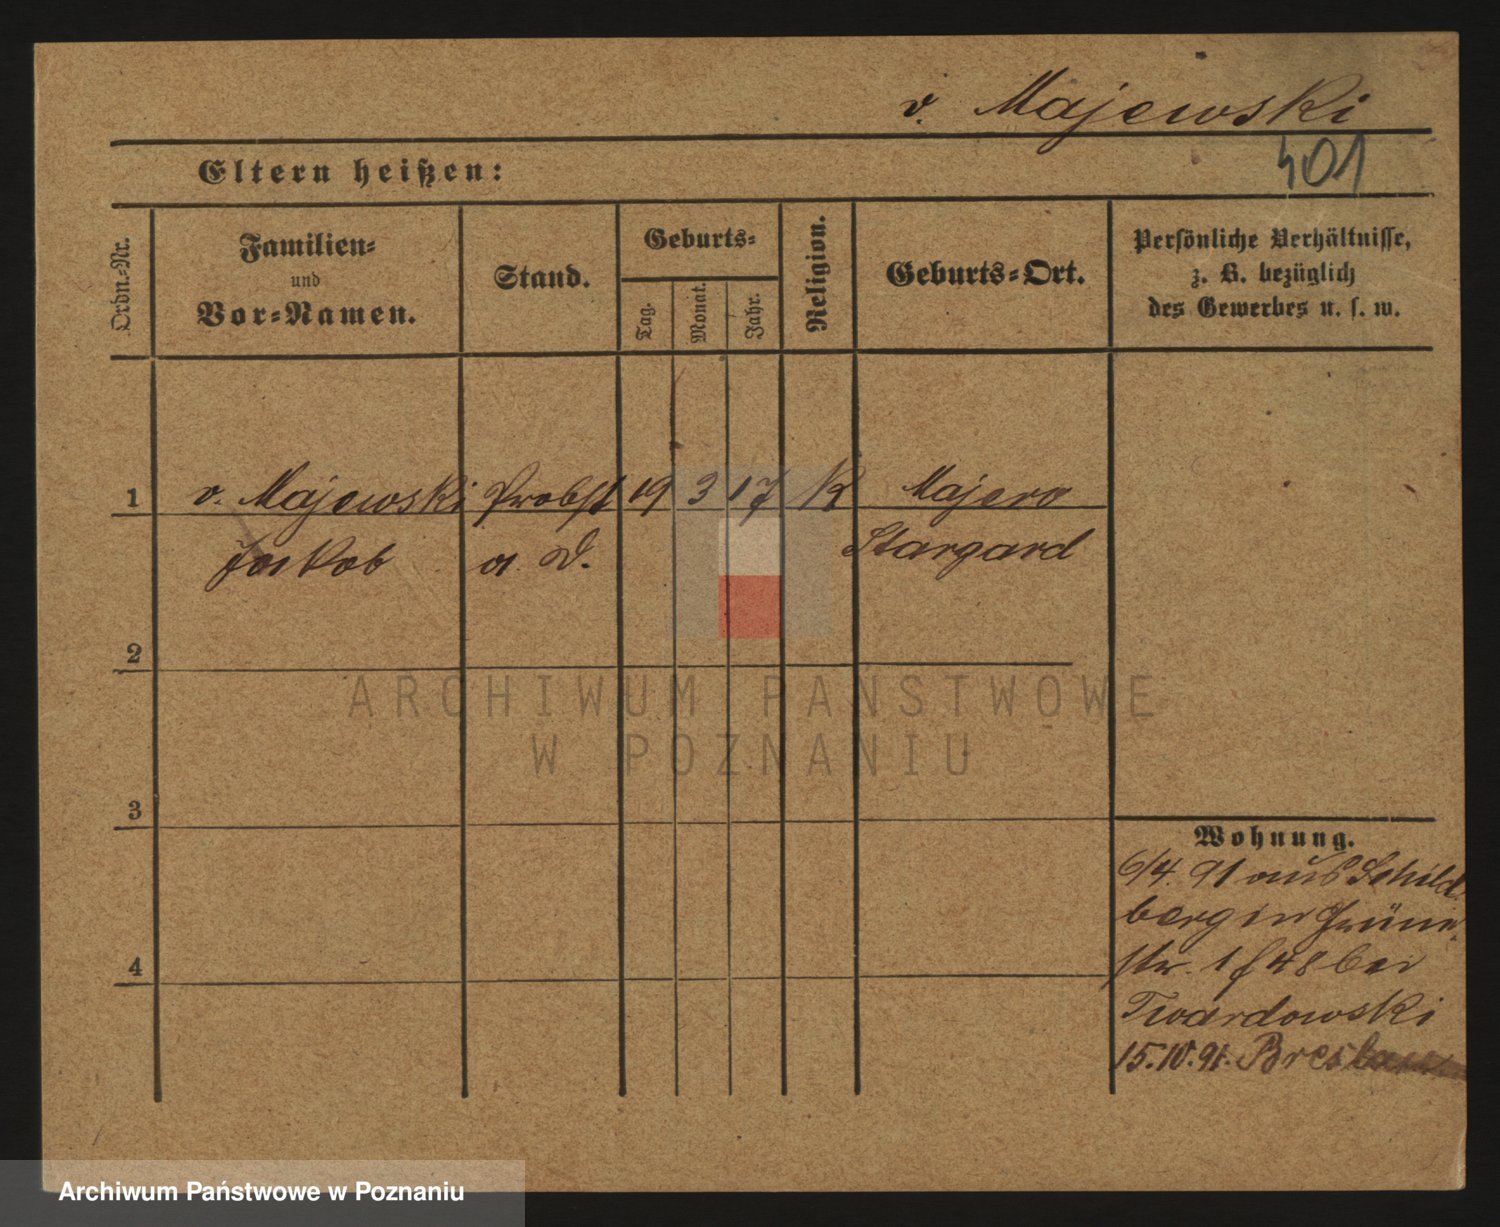 v. Majewski
401
Eltern heißen:
Ordn.-Nr.
Familien-
und
Vor-Namen.
Stand.
Geburts-
Tag.
Monat.
Jahr.
Religion.
Geburts-Ort.
Persönliche Verhältnisse,
z. B. bezüglich
des Gewerbes u. s. w.
1 v. Majewski Probst 19 3 17 K Majero
Jakob a. D. Stargard
2
ARCHIWUM PAŃSTWOWE
W POZNANIU
3
Wohnung.
6/4. 91 aus Schild
berg in Grüne
str. 1 f 48 bei
4
Twardowski
15.10.91. Breslau
Archiwum Państwowe w Poznaniu